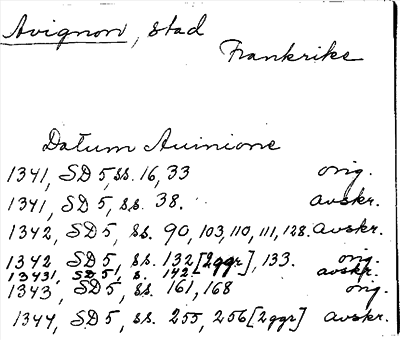 Avignon, stad
Frankrike
Datum Auinione
1341, SD 5, ss. 16, 33 orig.
1341, SD 5, ss. 38. avskr.
1342, SD 5, ss. 90, 103, 110, 111, 128. avskr.
1342 SD 5, ss. 132 [2ggr], 133. orig.
1343, SD 5, s. 142 avskr.
1343, SD 5, ss. 161, 168 orig.
1344, SD 5, ss. 255, 256 [2ggr] avskr.